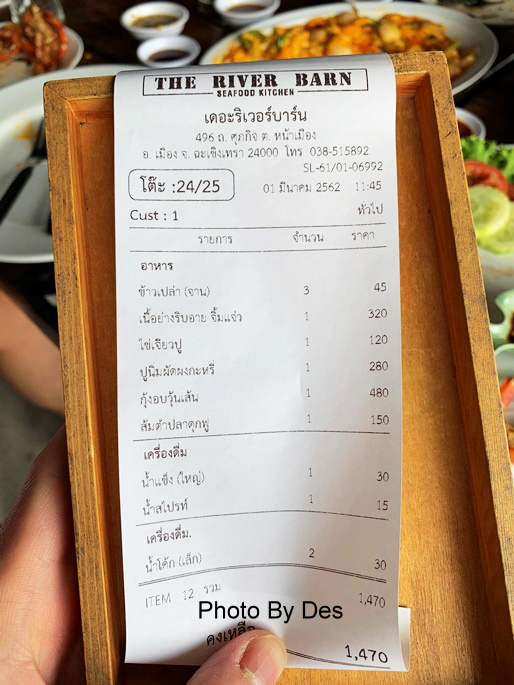 THE RIVER BARN
SEAFOOD KITCHEN
เดอะริเวอร์บาร์น
496 ถ. ศุภกิจ ต. หน้าเมือง
อ. เมือง จ. ฉะเชิงเทรา 24000 โทร 038-515892
SL-61/01-06992
โต๊ะ :24/25 01 มีนาคม 2562 11:45
Cust : 1 ทั่วไป
รายการ จำนวน ราคา
อาหาร
ข้าวเปล่า (จาน) 3 45
เนื้อย่างริบอาย จิ้มแจ่ว 1 320
ไข่เจียวปู 1 120
ปูนิมผัดผงกะหรี่ 1 280
กุ้งอบวุ้นเส้น 1 480
ส้มตำปลาดุกฟู 1 150
เครื่องดื่ม
น้ำแข็ง (ใหญ่) 1 30
น้ำสไปรท์ 1 15
เครื่องดื่ม.
น้ำโค้ก (เล็ก) 2 30
ITEM 12 รวม 1,470
Photo By Des
คงเหลือ 1,470